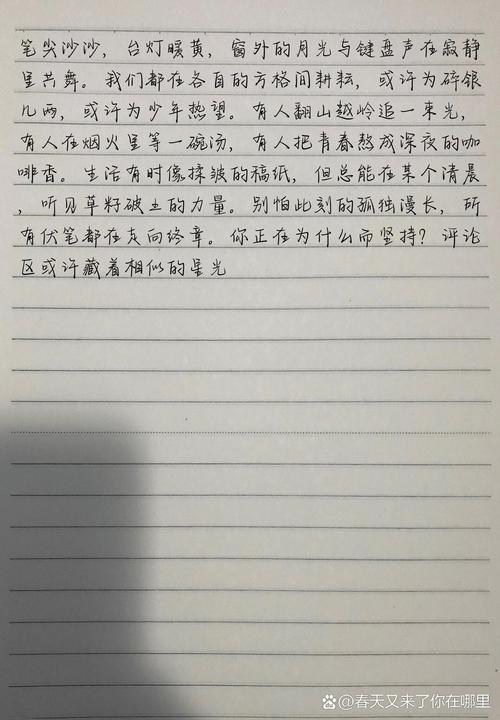 笔尖沙沙，台灯暖黄，窗外的月光与键盘声在寂静
里共舞。我们都在各自的方格间耕耘，或许为碎银
几两，或许为少年热望。有人翻山越岭追一束光，
有人在烟火里等一碗汤，有人把青春熬成深夜的咖
啡香。生活有时像揉皱的稿纸，但总能在某个清晨
，听见草籽破土的力量。别怕此刻的孤独漫长，所
有伏笔都在走向终章。你正在为什么而坚持？评论
区或许藏着相似的星光
@春天又来了你在哪里